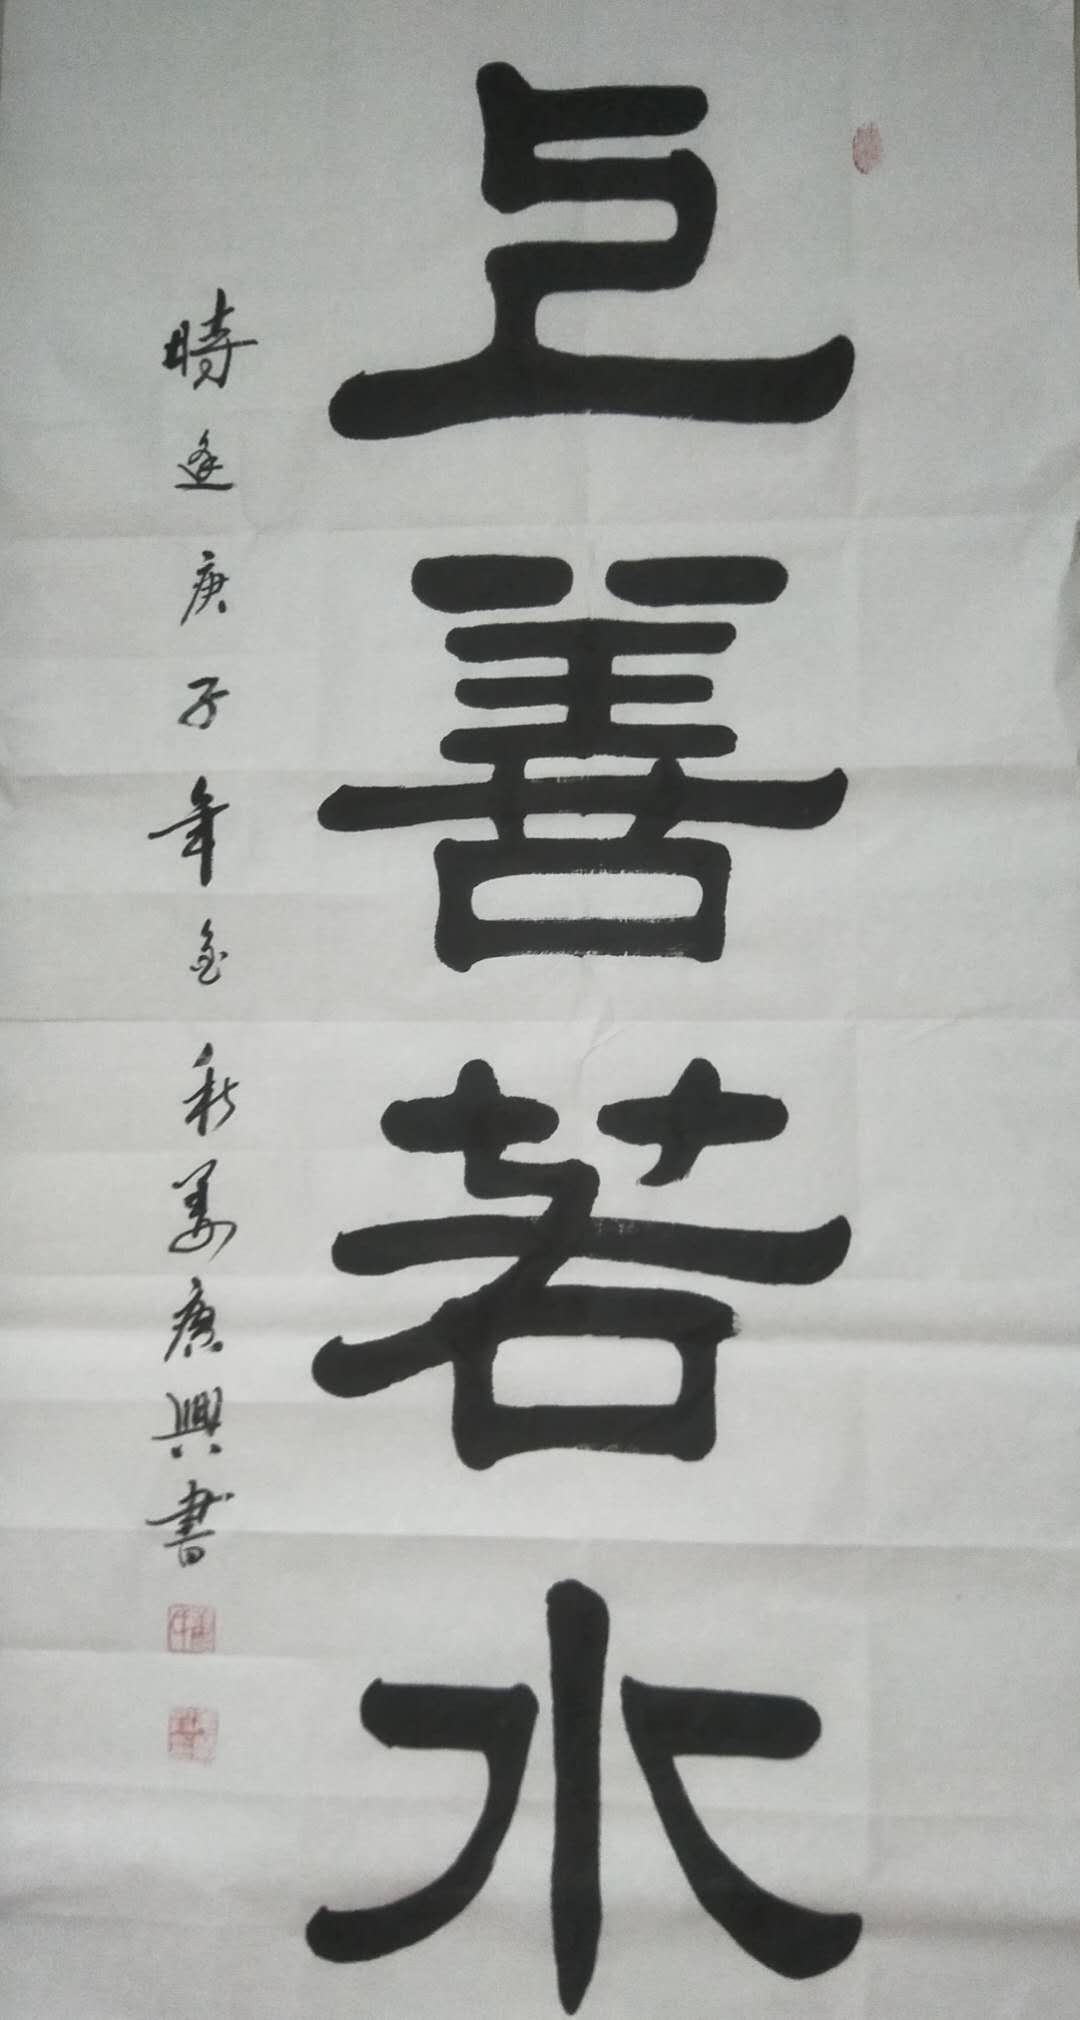 上善若水
時逢庚子年金秋姜广興書